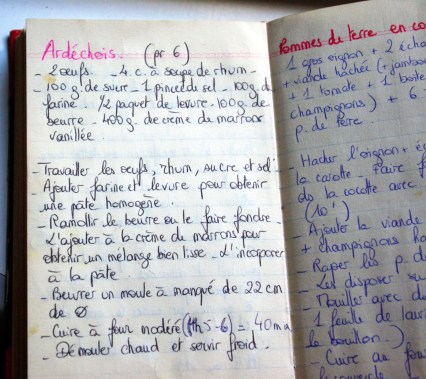 Ardéchois. (pr 6)
- 2 oeufs. - 4. c. à soupe de rhum -
- 100 g. de sucre - 1 pincée de sel - 100 g. de
farine. 1/2 paquet de levure - 100 g. de
beurre - 400 g. de crème de marrons
vanillée.
- Travailler les oeufs, rhum, sucre et sel
- Ajouter farine et levure pour obtenir
une pâte homogène.
- Ramollir le beurre ou le faire fondre
L'ajouter à la crème de marrons pour
obtenir un mélange bien lisse. L'incorporer
à la pâte.
- Beurrer un moule à manqué de 22 cm
de Ø
- Cuire à four modéré (th 5-6) = 40 mn
- Démouler chaud et servir froid.
Pommes de terre en co
1 gros oignon + 2 écha
+ viande hachée (+ jambon
+ 1 tomate + 1 boîte
champignons) + 6
p. de terre
- Hacher l'oignon + é
la carotte. Faire
ds la cocotte avec
(10')
- Ajouter la viande
+ champignons ha
- Raper les p. d
- Les disposer su
- Mouiller avec d
1 feuille de laur
le bouillon.)
- Cuire au fou